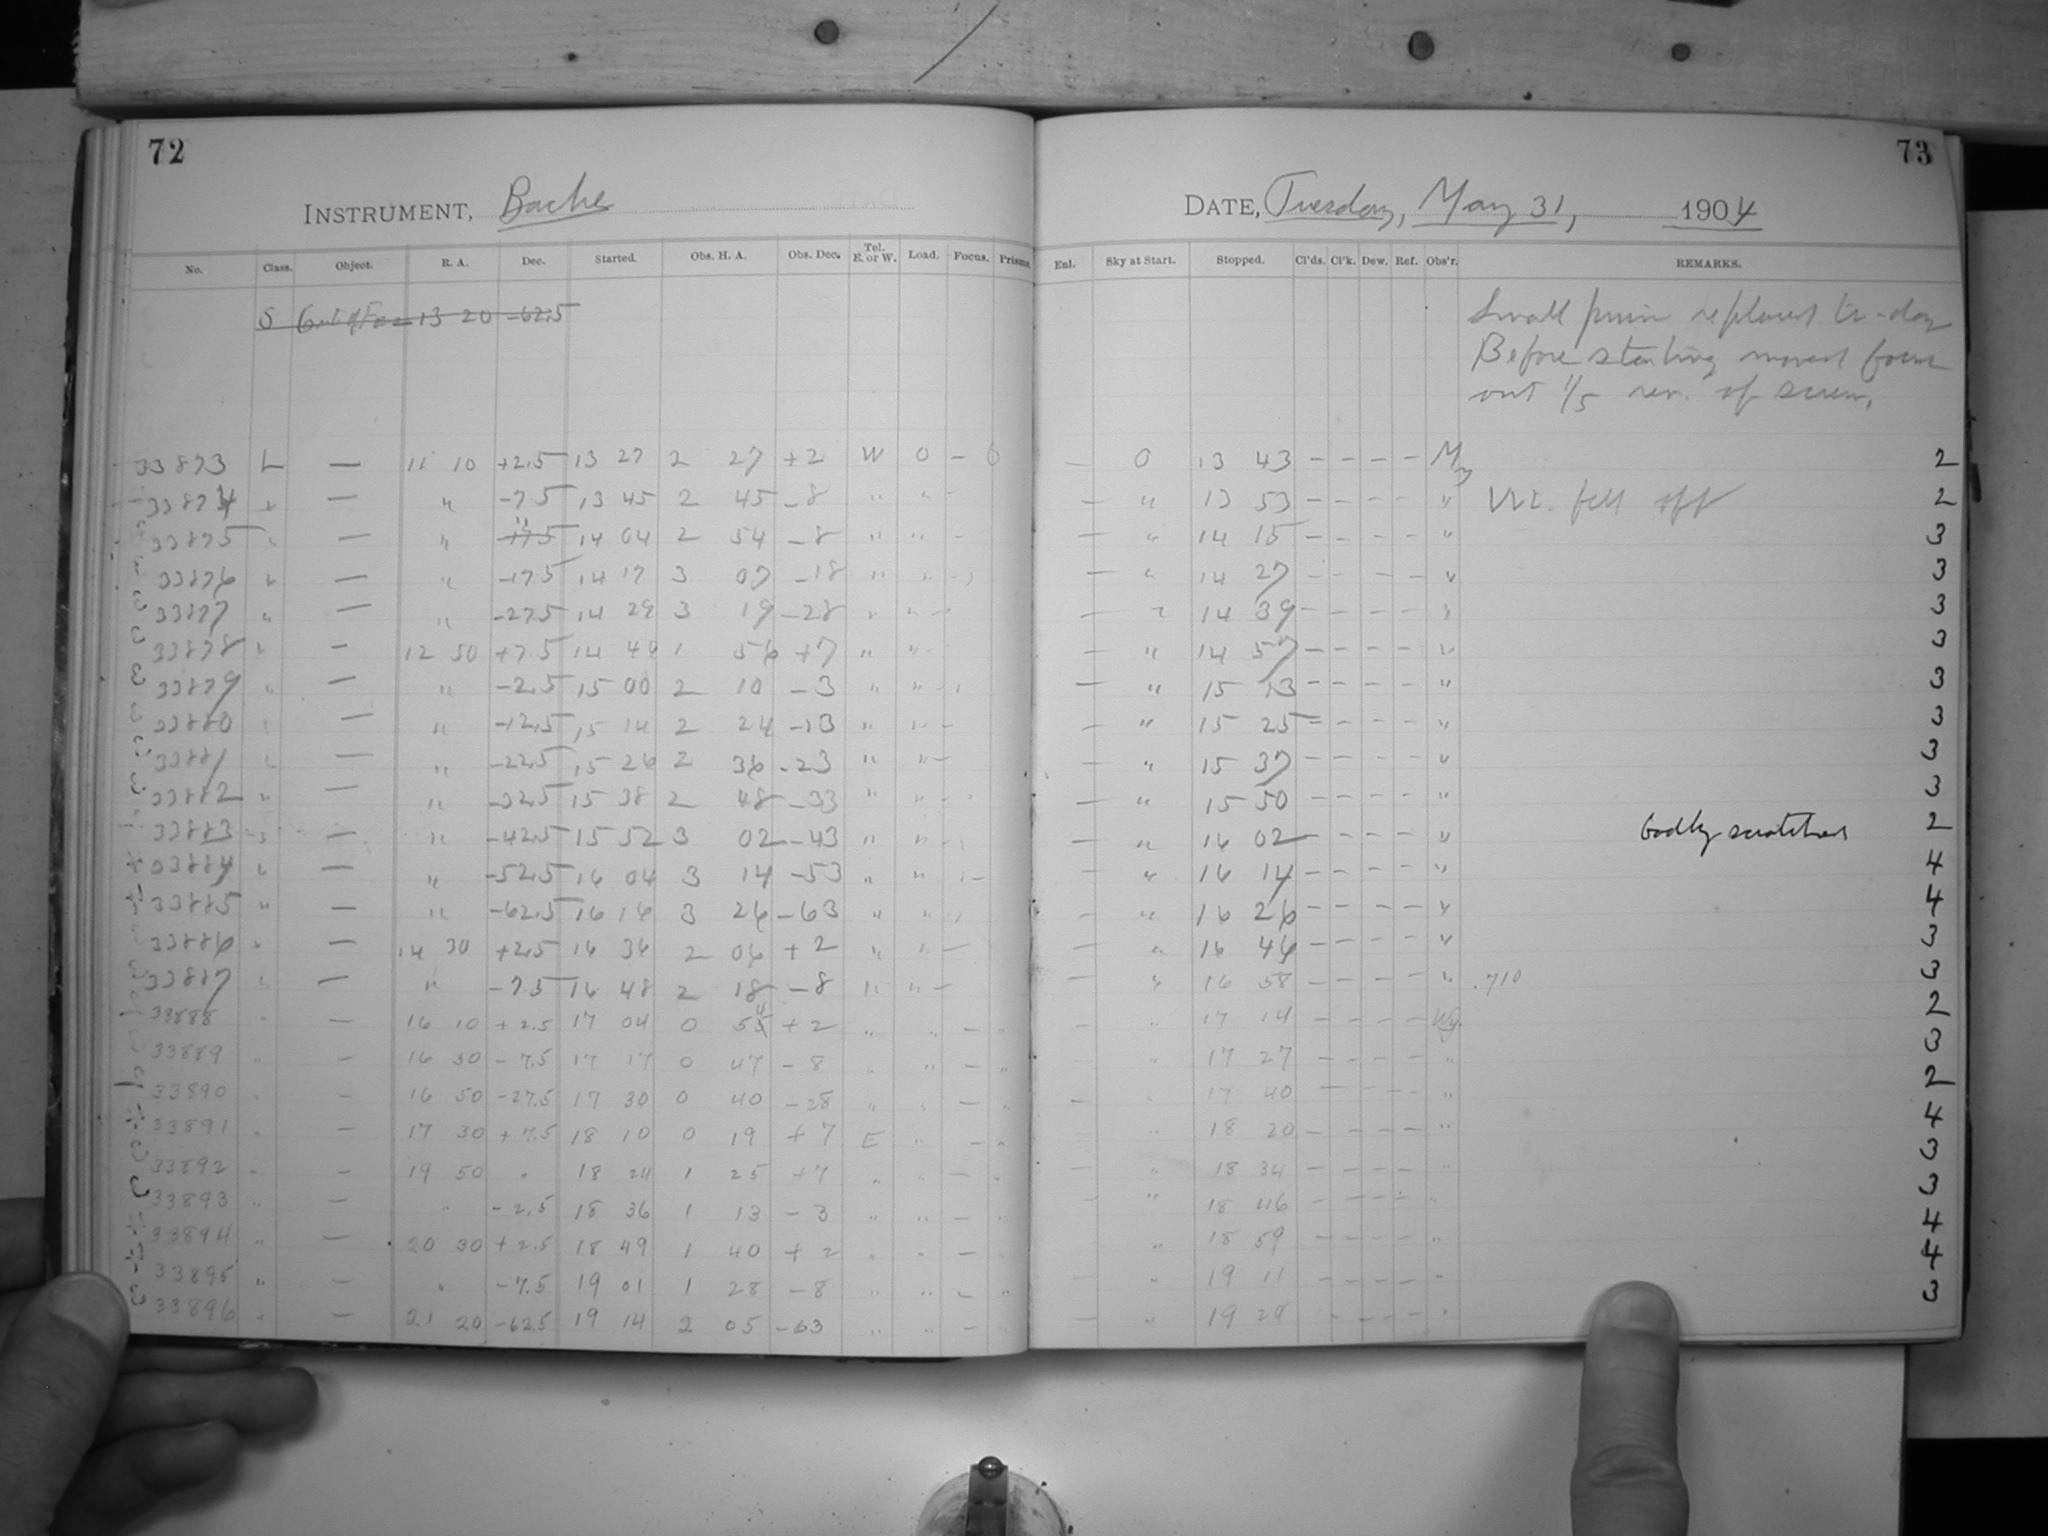 72
73
INSTRUMENT, Bache
DATE, Tuesday, May 31, 1904
No. Class. Object. R. A. Dec. Started. Obs. H. A. Obs. Dec. Tel. E. or W. Load. Focus. Prisms. Enl. Sky at Start. Stopped. Cl'ds. Cl'k. Dew. Ref. Obs'r. REMARKS.
S Out of Focus 13 20 -62.5
Small prism replaced to-day
Before starting moved focus
out 1/5 rev. of screw.
33873 L — 11 10 +2.5 13 27 2 27 +2 W 0 - 0 — 0 13 43 - - - - My 2
33874 " — " -7.5 13 45 2 45 -8 " " - — " 13 53 - - - - " Wt. fell off 2
33875 " — " " 14 04 2 54 -8 " " - — " 14 15 - - - - " 3
33876 " — " -17.5 14 17 3 07 -18 " " - — " 14 27 - - - - " 3
33877 " — " -27.5 14 29 3 19 -28 " " - — " 14 39 - - - - " 3
33878 " — 12 50 +7.5 14 46 1 56 +7 " " - — " 14 57 - - - - " 3
33879 " — " -2.5 15 00 2 10 -3 " " - — " 15 13 - - - - " 3
33880 " — " -12.5 15 14 2 24 -13 " " - — " 15 25 - - - - " 3
33881 " — " -22.5 15 26 2 36 -23 " " - — " 15 37 - - - - " 3
33882 " — " -32.5 15 38 2 48 -33 " " - — " 15 50 - - - - " 3
33883 " — " -42.5 15 52 3 02 -43 " " - — " 16 02 - - - - " badly scratched 2
33884 " — " -52.5 16 04 3 14 -53 " " - — " 16 14 - - - - " 4
33885 " — " -62.5 16 16 3 26 -63 " " - — " 16 26 - - - - " 4
33886 " — 14 30 +2.5 16 36 2 06 +2 " " - — " 16 46 - - - - " 3
33887 " — " -7.5 16 48 2 18 -8 " " - — " 16 58 - - - - " .710 3
33888 " — 16 10 +2.5 17 04 0 54 +2 " " - " — " 17 14 - - - - Wy. 2
33889 " — 16 30 -7.5 17 17 0 47 -8 " " - " " 17 27 - - - - " 3
33890 " — 16 50 -27.5 17 30 0 40 -28 " " - " — " 17 40 - - - - " 2
33891 " — 17 30 +7.5 18 10 0 19 +7 E " - " — " 18 20 - - - - " 4
33892 " — 19 50 " 18 24 1 25 +7 " " - " — " 18 34 - - - - " 3
33893 " — " -2.5 18 36 1 13 -3 " " - " — " 18 46 - - - - " 3
33894 " — 20 30 +2.5 18 49 1 40 +2 " " - " " 18 59 - - - - " 4
33895 " — " -7.5 19 01 1 28 -8 " " - " — " 19 11 - - - - " 4
33896 " — 21 20 -62.5 19 14 2 05 -63 " " - " — " 19 24 - - - - " 3